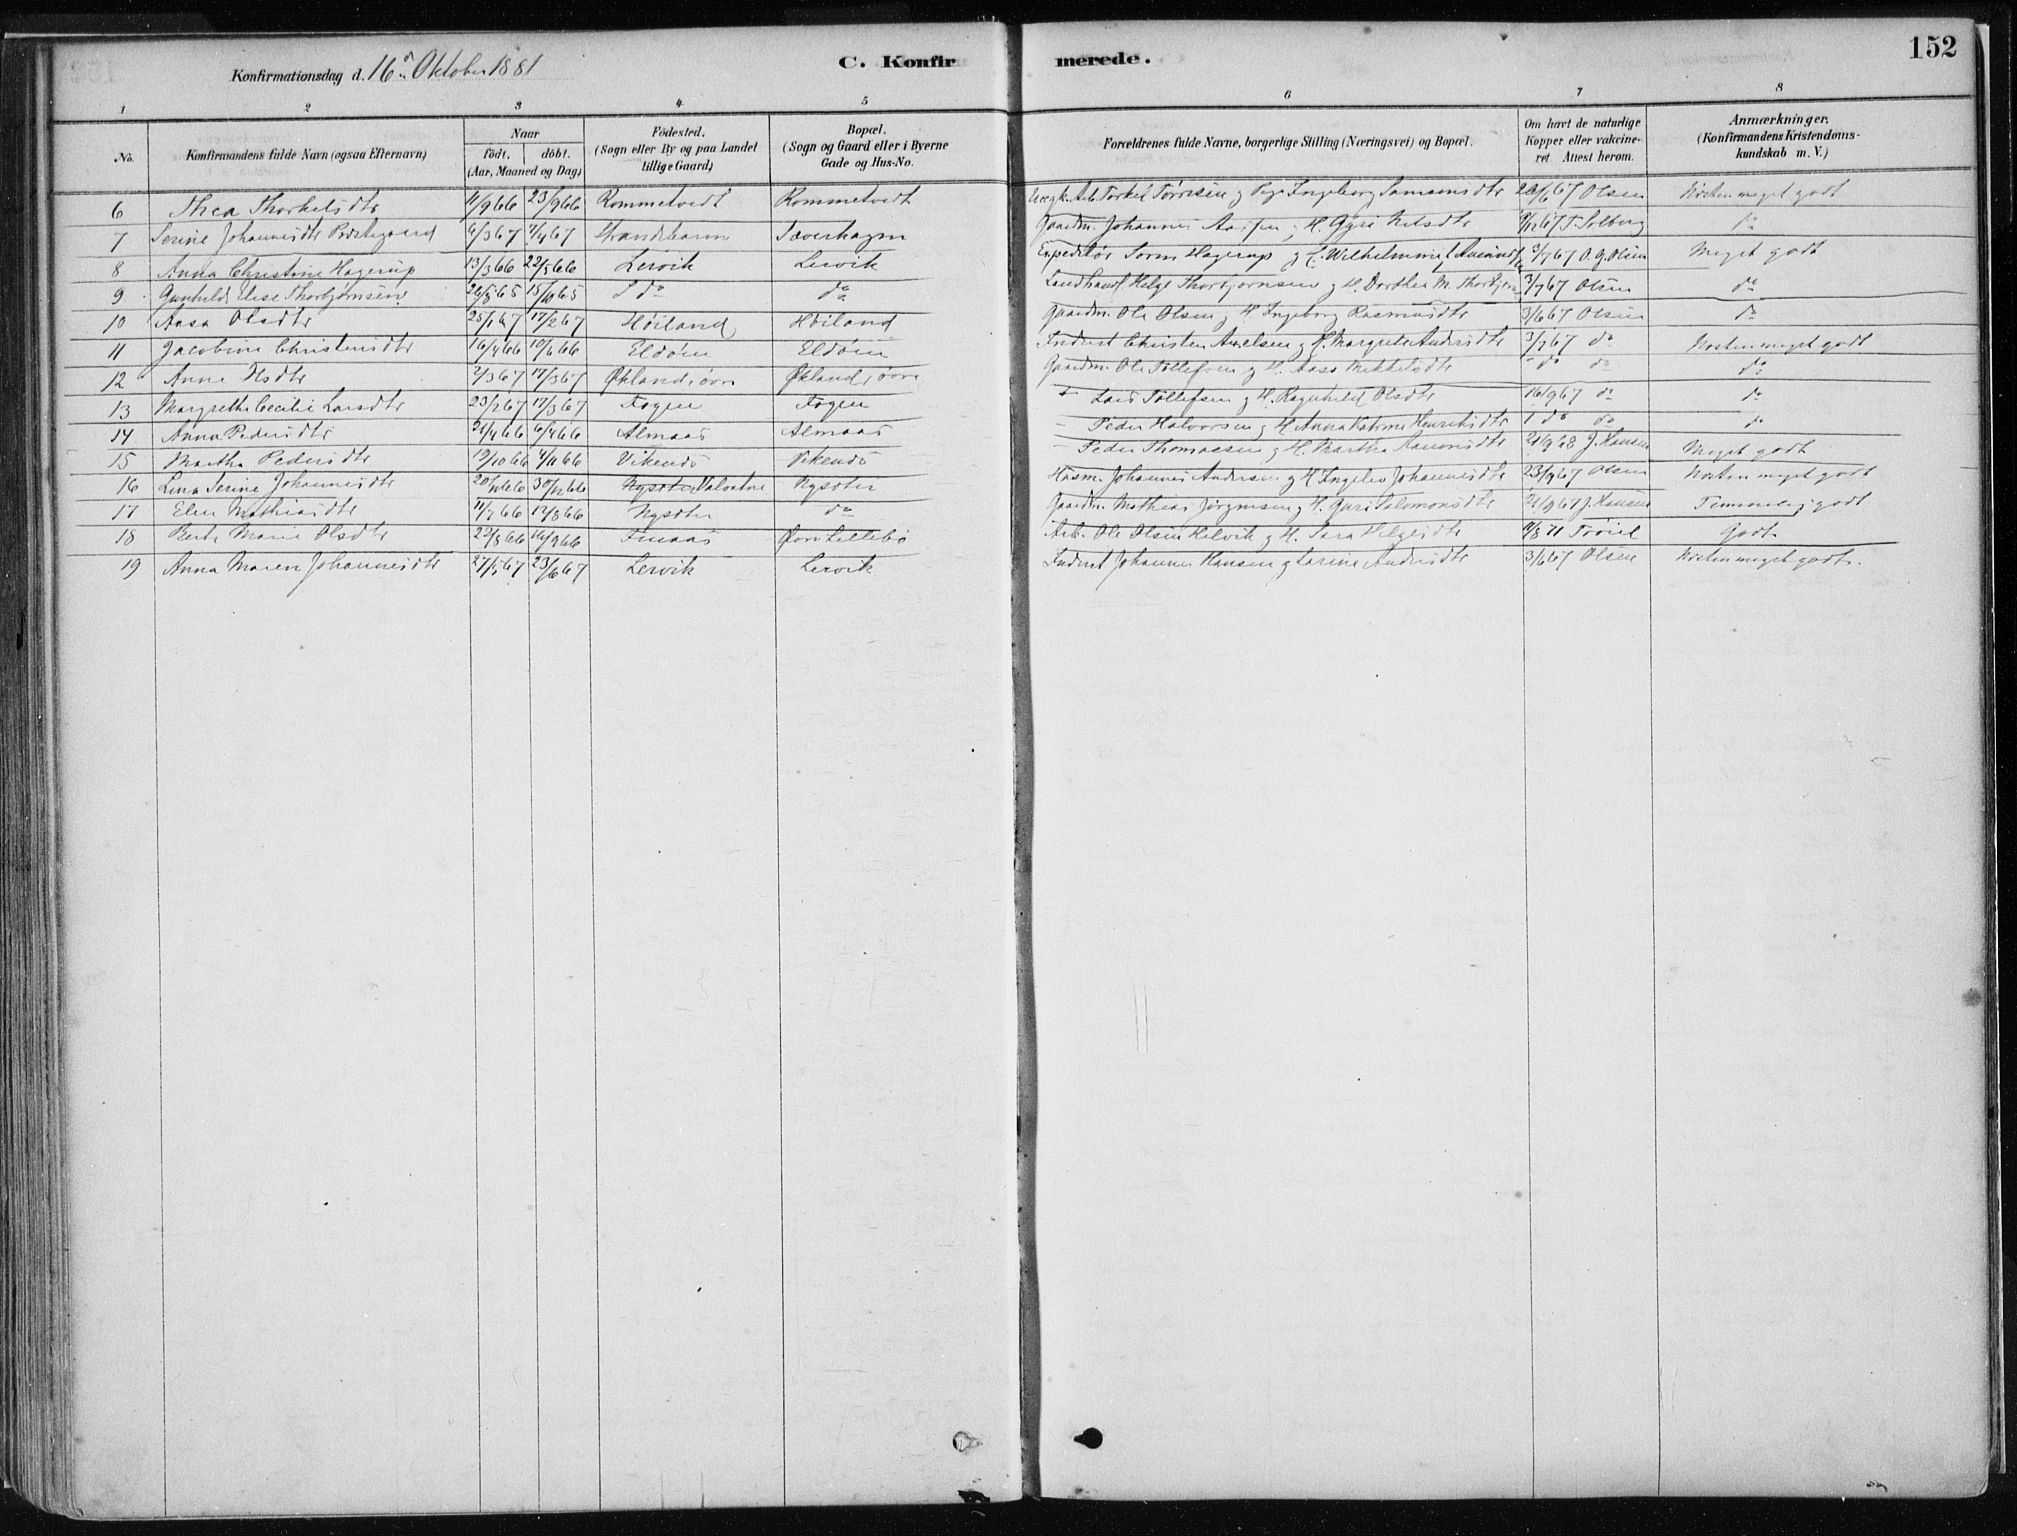 152
Konfirmationsdag d. 16de Oktober 1881
C. Konfirmerede.
1 2 3 4 5 6 7 8
No. Konfirmandens fulde Navn (ogsaa Efternavn) Naar født. døbt. (Aar, Maaned og Dag) Fødested. (Sogn eller By og paa Landet tillige Gaard) Bopæl. (Sogn og Gaard eller i Byerne Gade og Hus-No. Forældrenes fulde Navne, borgerlige Stilling (Næringsvei) og Bopæl. Om havt de naturlige Kopper eller vakcineret Attest herom. Anmærkninger. (Konfirmandens Kristendomskundskab m. V.)
6 Thea Thorkelsdtr 11/9 66 23/9 66 Rommetvedt Rommetvedt Torkel Tørresen og Ingeborg Samsonsdtr 20/6 67 Olsen Næsten meget godt
7 Serine Johannesdtr Præstegaard 6/3 67 7/4 67 Strandebarm Gaardm. Johannes H. Gyri Nilsdtr T. Solberg do
8 Anna Christine Hagerup 13/3 66 22/5 66 Lervik Lervik Expeditør Søren Hagerup og H. Wilhelmine 3/7 67 O. G. Olsen Meget godt
9 Gunhild Elise Thorbjørnsen 26/8 65 15/10 65 do do Landhandl. Helge Thorbjørnsen og H. Dorthea M. 3/7 67 Olsen do
10 Aasa Olsdtr 25/1 67 17/2 67 Høiland Høiland Gaardm. Ole Olsen og H. Ingeborg Rasmusdtr 3/6 67 Olsen do
11 Jacobine Christensdtr 16/4 66 10/6 66 Eldøen Eldøen Inderst Christen Axelsen og H. Margrete Andersdtr 3/7 67 do Næsten meget godt
12 Anne Olsdtr 2/3 67 17/3 67 Gaardm. Ole Tollefsen og H. Aasa Mikkelsdtr " do do do
13 Margrethe Cecilie Larsdtr 23/2 67 17/3 67 Fogen Fogen Lars Tollefsen og H. Ragnhild Olsdtr 16/9 67 do do
14 Anna Pedersdtr 6/4 66 Almaas Almaas – Peder Halvorsen og H. Anna Katrine Henriksdtr do do do
15 Martha Pedersdtr 12/10 66 4/11 66 Vikendø Vikendø – Peder Thomassen og H. Martha 21/9 68 J. Hansen Meget godt
16 Lina Serine Johannesdtr 30/12 66 Valvatne Nysæter Husm. Johannes Andersen og H. Ingelev Johannesdtr 23/9 67 Olsen Næsten meget godt
17 Elen Mathiasdtr 11/7 66 12/8 66 Nysæter do Gaardm. Mathias Jørgensen og H. Guri Salomonsdtr 21/9 67 J. Hansen Temmelig godt
18 Berte Marie Olsdtr 22/8 66 16/9 66 Lillebø Arb. Ole Olsen Helvik og H. Sara Helgesdtr Godt
19 Anna Maren Johannesdtr 27/5 67 23/6 67 Lervik Lervik Inderst Johannes Hansen og Larine Andersdtr 3/6 67 Olsen Næsten meget godt.